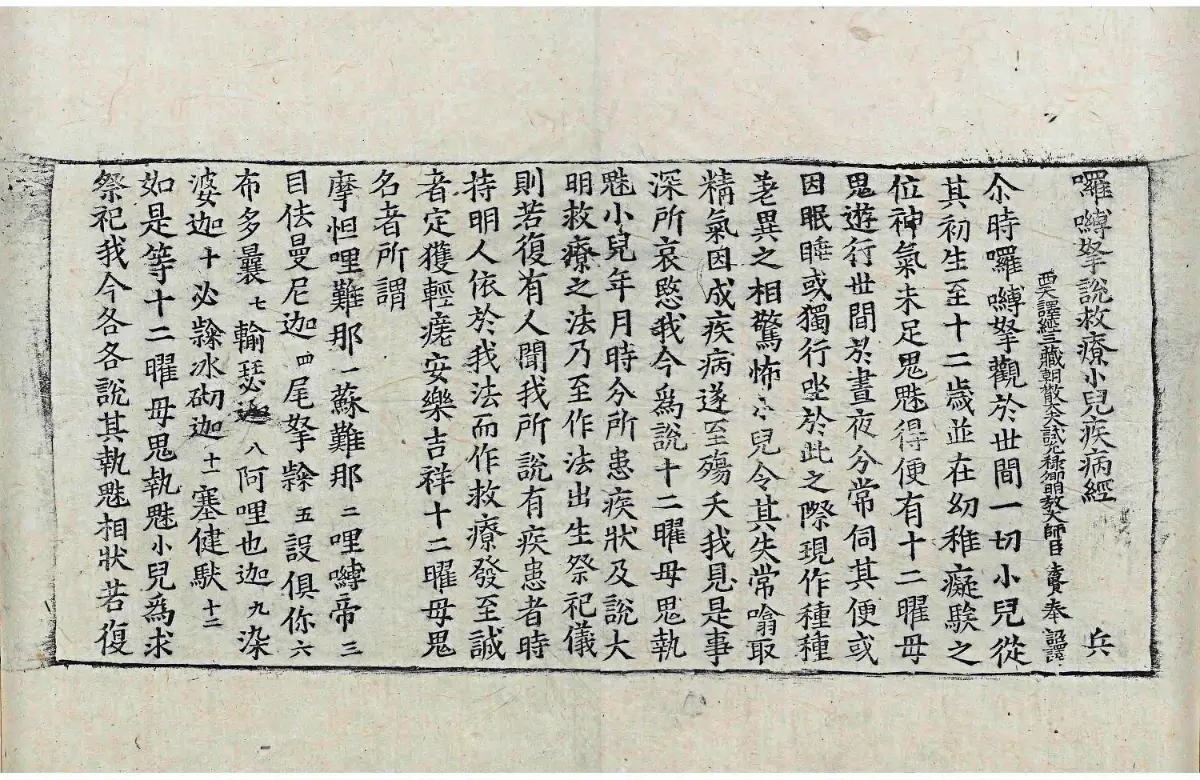 囉嚩拏說救療小兒疾病經　兵
西天譯經三藏朝散大夫試光祿卿明教大師臣法賢奉　詔譯
尒時囉嚩拏觀於世間一切小兒從
其初生至十二歲並在幼稚癡騃之
位神氣未足鬼魅得便有十二曜母
鬼遊行世間於晝夜分常伺其便或
因眠睡或獨行坐於此之際現作種種
差異之相驚怖小兒令其失常噏取
精氣因成疾病遂至殤夭我見是事
深所哀愍我今為說十二曜母鬼執
魅小兒年月時分所患疾狀及說大
明救療之法乃至作法出生祭祀儀
則若復有人聞我所說有疾患者時
持明人依於我法而作救療發至誠
者定獲輕瘥安樂吉祥十二曜母鬼
名者所謂
摩怛哩難那一蘇難那二哩嚩帝三
目佉曼尼迦四尾拏隸五設俱你六
布多曩七輸瑟迦八阿哩也迦九染
婆迦十必隸冰砌迦十一塞健馱十二
如是等十二曜母鬼執魅小兒為求
祭祀我今各各說其執魅相狀若復